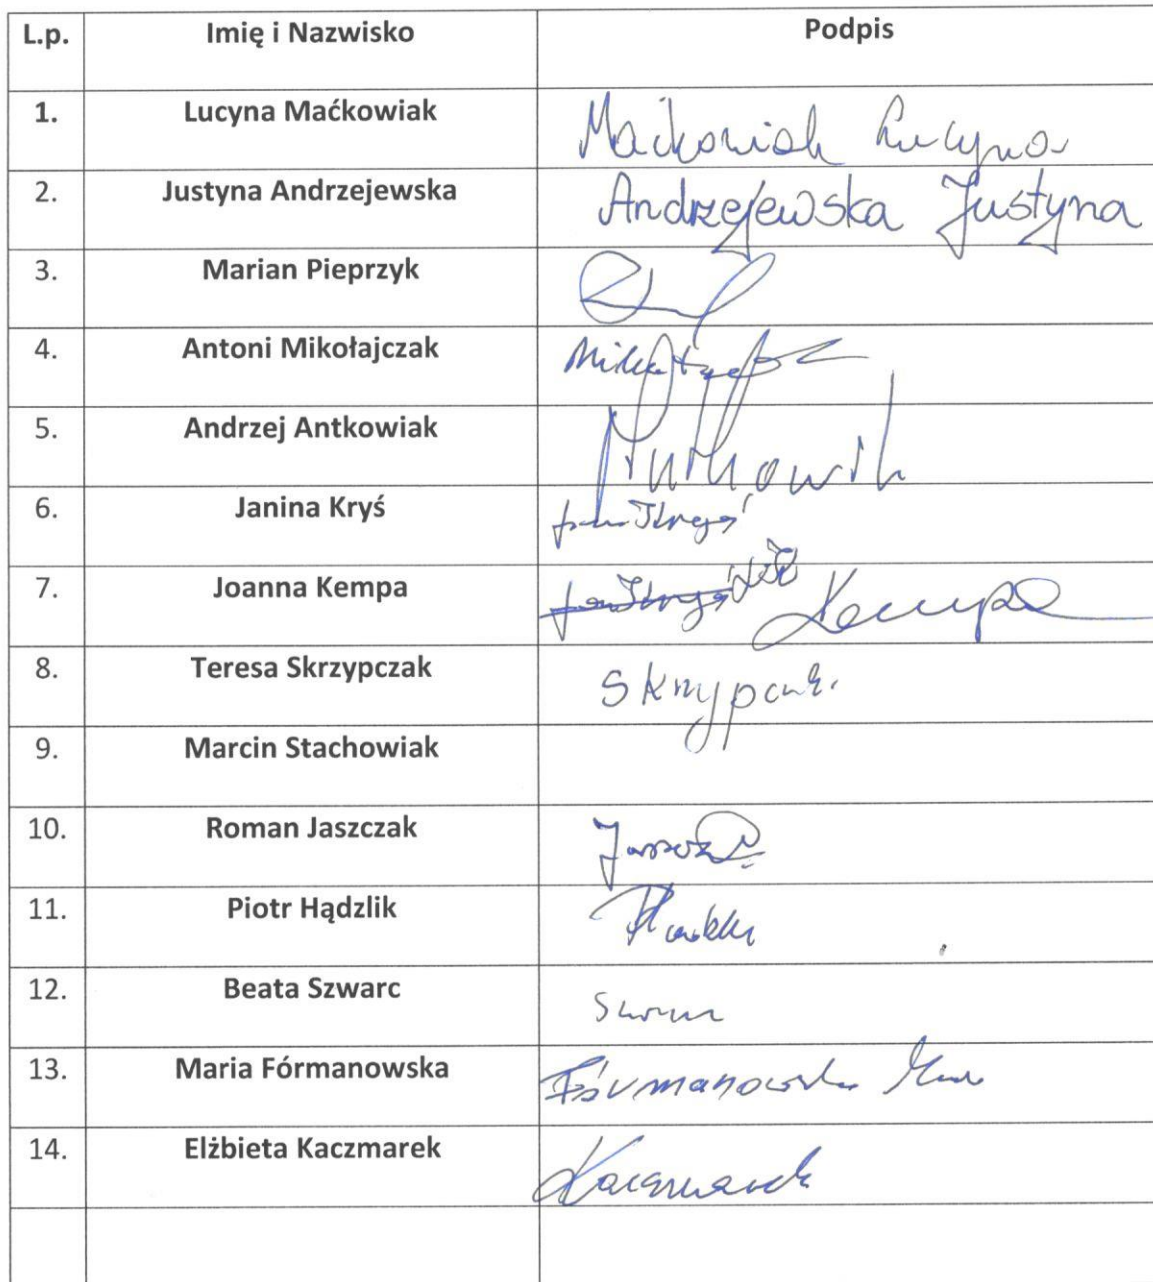 L.p. Imię i Nazwisko Podpis
1. Lucyna Maćkowiak Maćkowiak Lucyna
2. Justyna Andrzejewska Andrzejewska Justyna
3. Marian Pieprzyk
4. Antoni Mikołajczak
5. Andrzej Antkowiak
6. Janina Kryś
7. Joanna Kempa Kempa
8. Teresa Skrzypczak
9. Marcin Stachowiak
10. Roman Jaszczak
11. Piotr Hądzlik
12. Beata Szwarc
13. Maria Fórmanowska Fórmanowska
14. Elżbieta Kaczmarek Kaczmarek